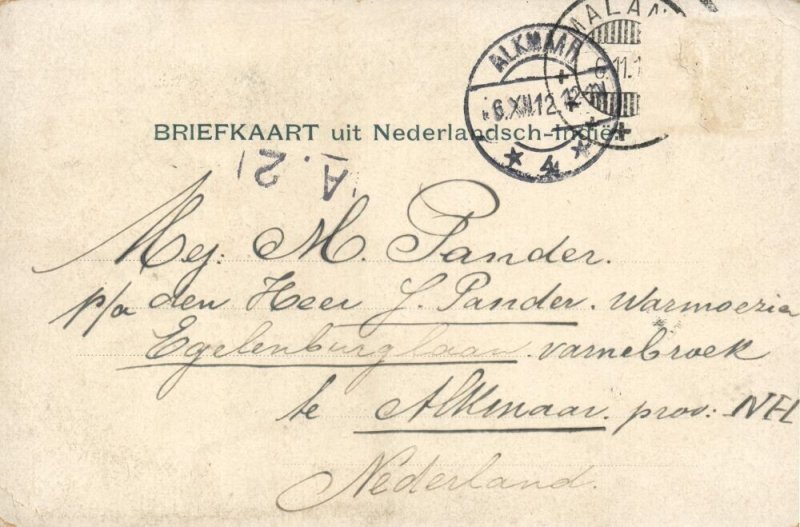 MALAN
6.11.1
ALKMAAR
6.XII.12.
4
BRIEFKAART uit Nederlandsch-Indië.
A.2
Mej. M. Pander.
p/a den Heer J. Pander. Warmoezia
Egelenburglaan. varnebroek
te Alkmaar. prov: NH
Nederland.